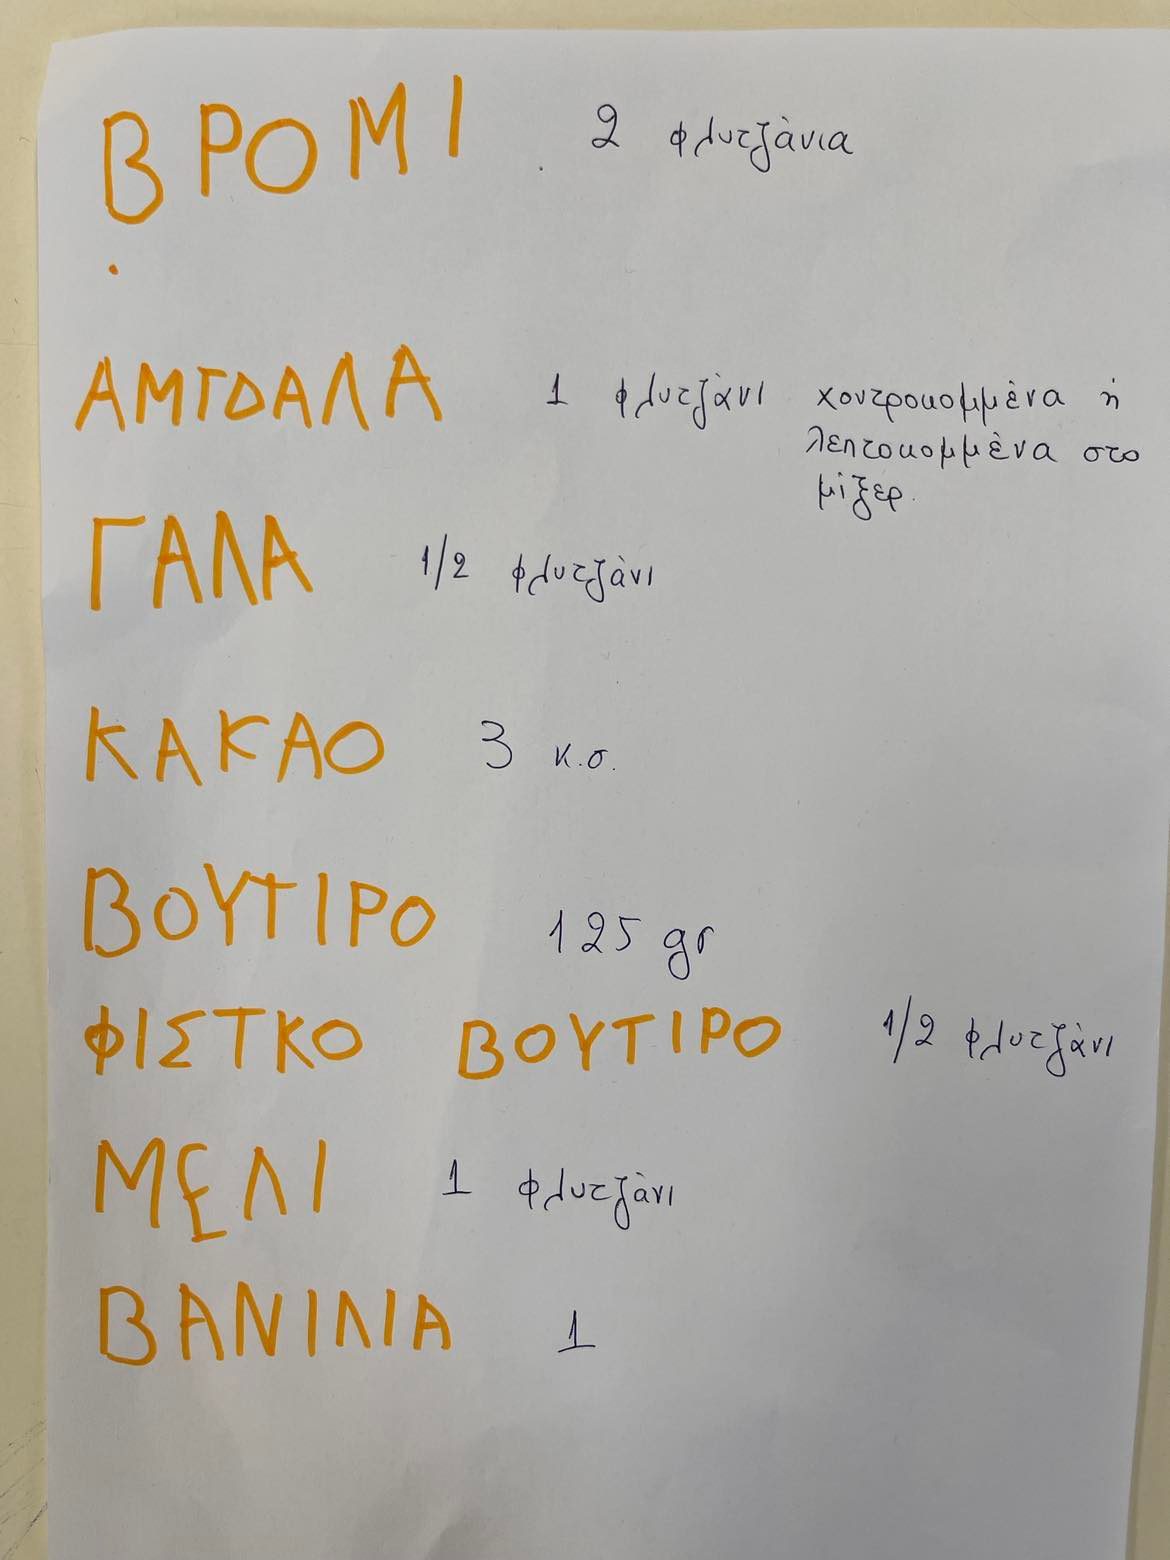 ΒΡΟΜΙ 2 φλυτζάνια
ΑΜΓΔΑΛΑ 1 φλυτζάνι χοντροκομμένα ή
λεπτοκομμένα στο
μίξερ.
ΓΑΛΑ 1/2 φλυτζάνι
ΚΑΚΑΟ 3 κ.σ.
ΒΟΥΤΙΡΟ 125 gr
ΦΙΣΤΚΟ ΒΟΥΤΙΡΟ 1/2 φλυτζάνι
ΜΕΛΙ 1 φλυτζάνι
ΒΑΝΙΛΙΑ 1